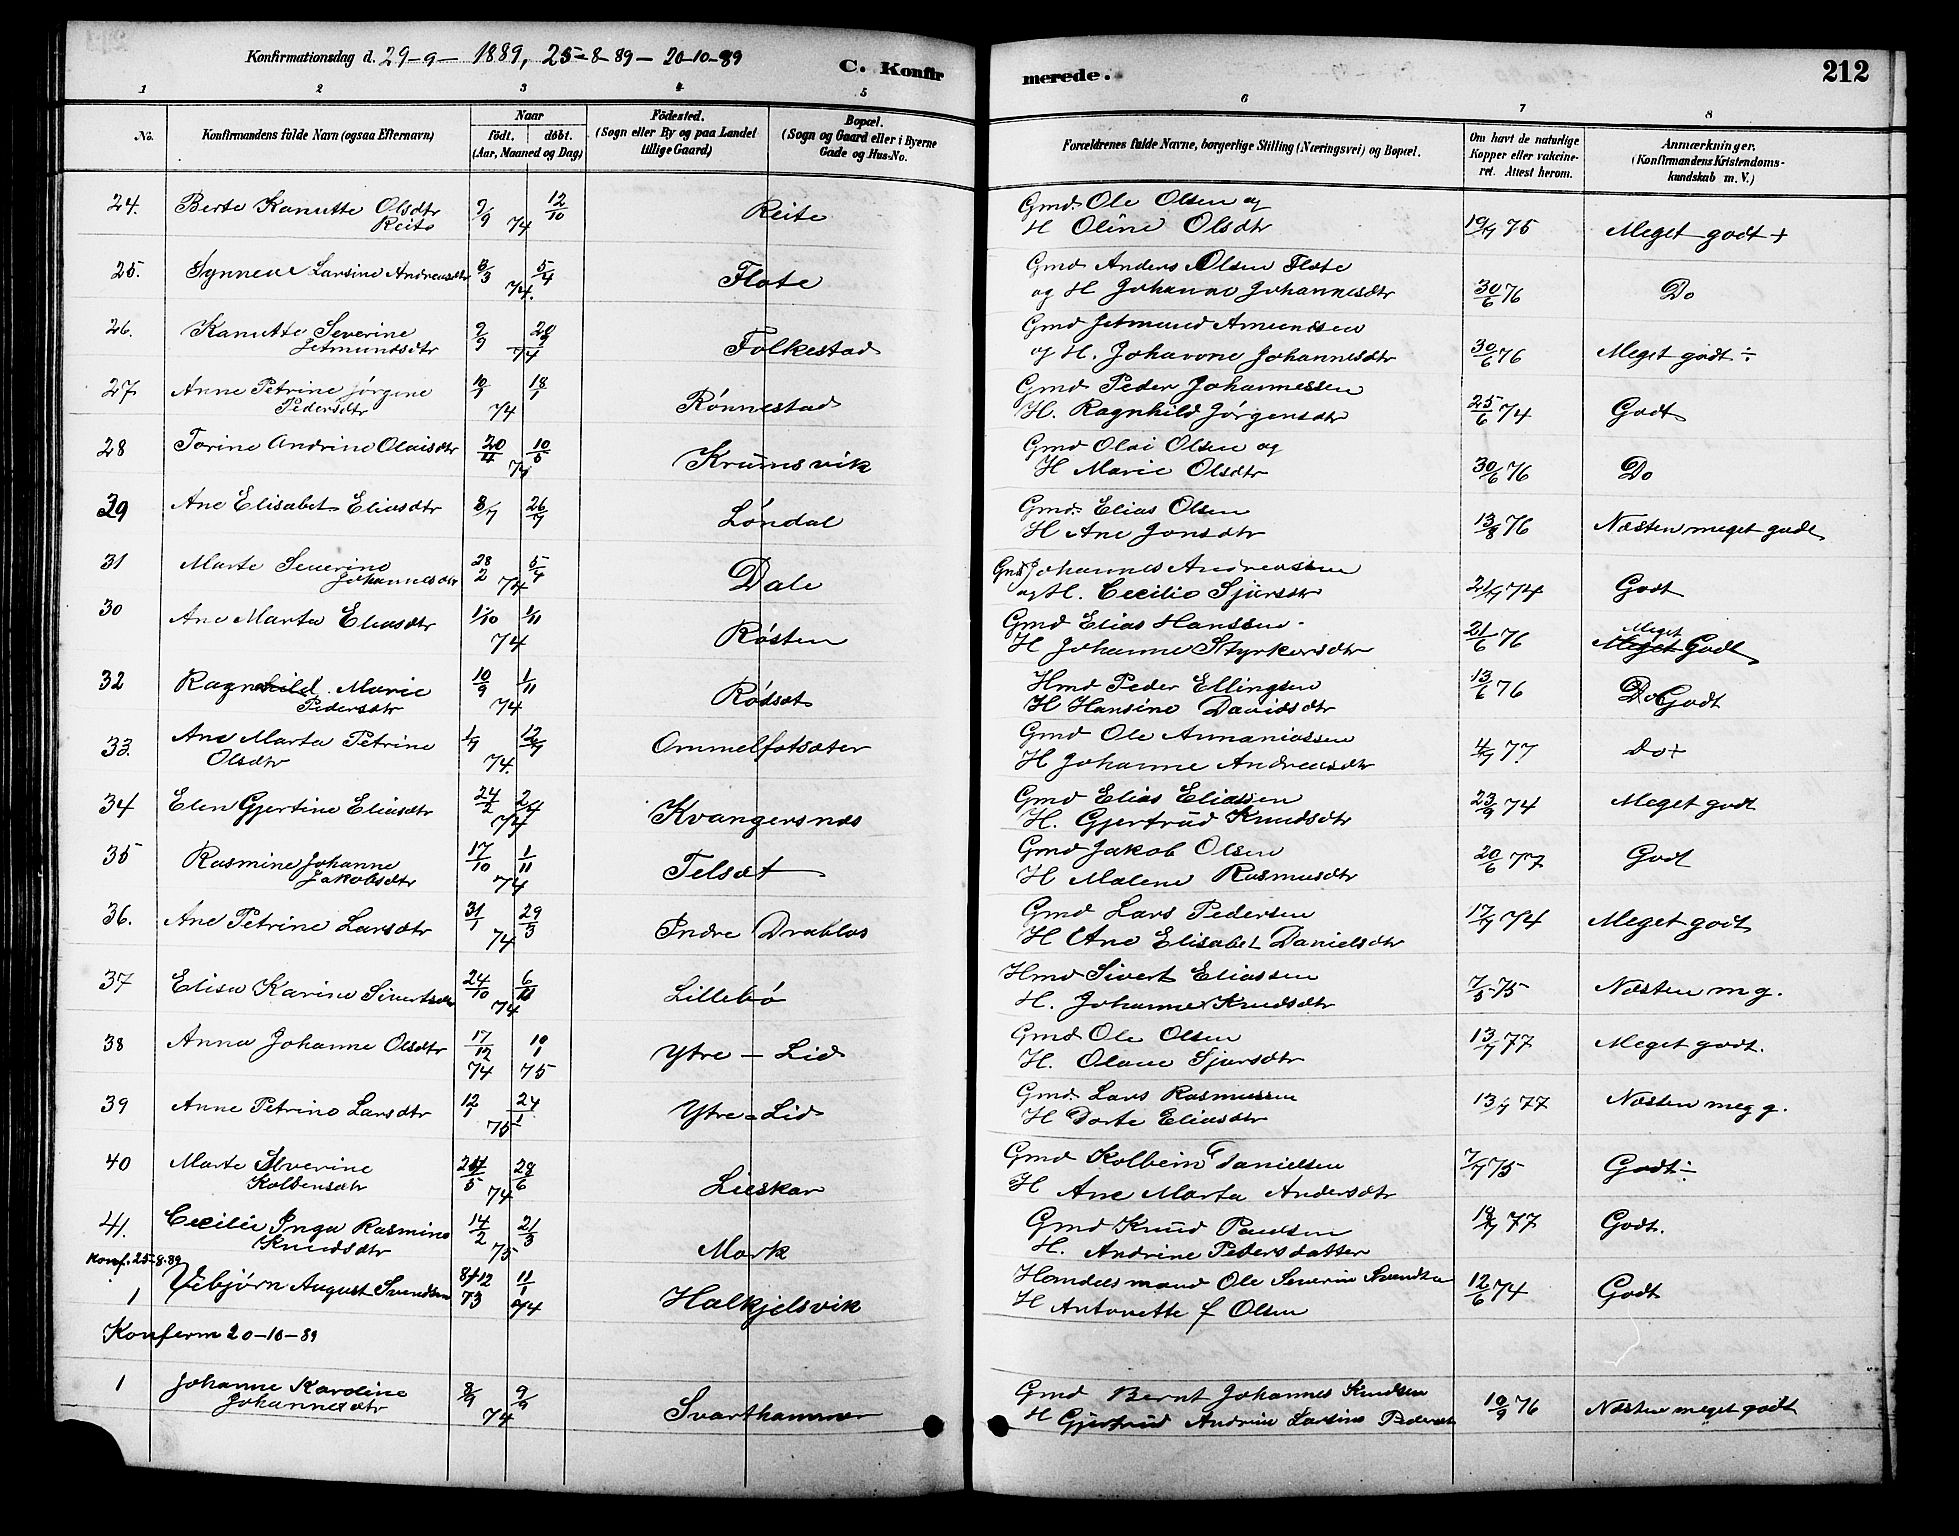 Konfirmationsdag d. 29-9- 1889, 25-8-89 - 20-10-89
C. Konfirmerede. 212
1 2 3 4 5 6 7 8
No. Konfirmandens fulde Navn (ogsaa Efternavn) Naar födt. döbt. (Aar, Maaned og Dag) Födested. (Sogn eller By og paa Landet tillige Gaard) Bopæl. (Sogn og Gaard eller i Byerne Gade og Hus-No. Forældrenes fulde Navne, borgerlige Stilling (Næringsvei) og Bopæl. Om havt de naturlige Kopper eller vakcineret. Attest herom. Anmærkninger. (Konfirmandens Kristendomskundskab m. V.)
24. Berte Kanutte Olsdtr 12/10 Reite Gmd. Ole Olsen og
Reite 74 H Oline Olsdtr 75 Meget godt +
25. Synneve Larsine Andreasdtr 8/3 5/4 Flote Gmd Anders Olsen Flote
74. og H Johanne Johannesdtr 30/6 76 Do
26. Kanutte Severine 2/9 Folkestad Gmd Jetmund Amundsen
Jetmundsdtr 74 og H. Johanne Johannesdtr 30/6 76 Meget godt ÷
27 Anne Petrine Jörgine 10/1 18/1 Rönnestad Gmd Peder Johannessen
Pedersdtr 74 H. Ragnhild Jörgensdtr 25/6 74 Godt
28 Torine Andrine Olaisdtr 20/4 10/5 Krumsvik Gmd Olai Olsen og
74 H Marie Olsdtr 30/6 76 Do
29 Ane Elisabet Eliasdtr 8/7 26/7 Løndal Gmd. Elias Olsen
H Ane Jonsdtr 13/8 76 Næsten meget godt
31 Marte Severine 28/2 5/4 Dale Gmd Johannes Andreassen
Johannesdtr 74 og H. Cecilie Sjursdtr 74 Godt
30 Ane Marta Eliasdtr 1/10 1/11 Røsten Gmd Elias Hanssen
74 H Johanne Styrkersdtr 21/6 76 Meget Godt
32 Ragnhild Marie 10/9 1/11 Rødset Hmd Peder Ellingsen
Pedersdtr 74 H Hansine Davidsdtr 13/6 76 Do Godt
33. Ane Marta Petrine 1/7 12/7 Ommelfotsæter Gmd Ole Annaniassen
Olsdtr 74. H Johanne Andreasdtr 77 do +
34 Elen Gjertine Eliasdtr 24/2 2/4 Kvangersnes Gmd Elias Eliassen
74 H. Gjertrud Knudsdtr 23/9 74 Meget godt
35 Rasmine Johanne 17/10 1/11 Telset Gmd Jakob Olsen
Jakobsdtr 74 H Malene Rasmusdtr 20/6 77 Godt
36. Ane Petrine Larsdtr 31/1 29/3 Indre Drabløs Gmd Lars Pedersen
74 H Ane Elisabet Danielsdtr 17/7 74 Meget godt
37 Elisa Karine Sivertsdtr 24/10 6/11 Lillebø Hmd Sivert Eliassen
74 H. Johanne Knudsdtr 7/5 75 Næsten m g.
38 Anna Johanne Olsdtr 17/12 10/1 Ytre - Lid Gmd Ole Olsen
74 75 H. Olave Sjursdtr 13/7 77 Meget godt.
39 Anne Petrine Larsdtr 12/1 24/1 Ytre - Lid Gmd Lars Rasmussen
75 H Dorte Eliasdtr 13/7 77 Næsten meg g.
40 Marte Severine 28/6 Lieskar Gmd Kolbein Danielsen
Kolbensdtr 74 H Ane Marta Andersdtr 7/7 75 Godt ÷
41. Cecilie Inga Rasmine 14/2 21/3 Mork Gmd Knud Paulsen
Knudsdtr 75 H. Andrine Pedersdatter 77 Godt.
Konf. 25-8-89
1 Vebjørn August Svendsen 8/12 11/1 Halkjelsvik Handelsmand Ole Severin Svendsen
73 74 H Antonette f Olsen 12/6 74 Godt
Konferm 20-10-89
1 Johanne Karoline 8/9 9/9 Svarthammer Gmd Bernt Johannes Knudsen
Johannesdtr 74 H Gjertrud Andrine Larsine Pedersdtr 10/9 76 Næsten meget godt